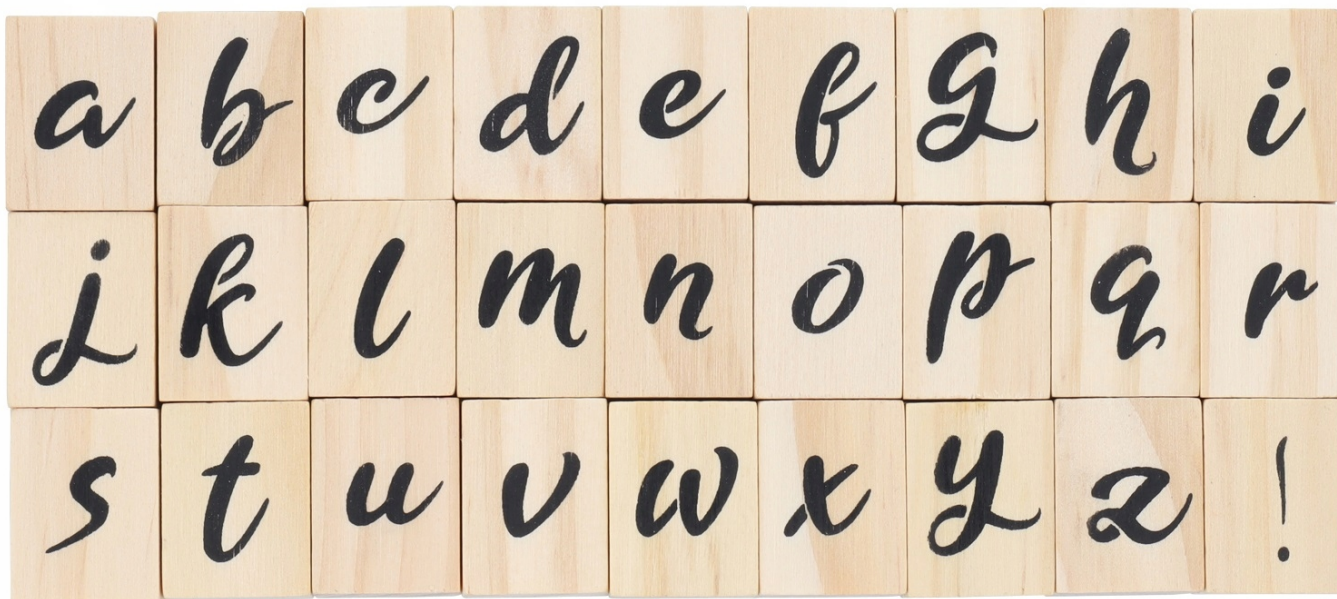 a b c d e f g h i
j k l m n o p q r
s t u v w x y z !